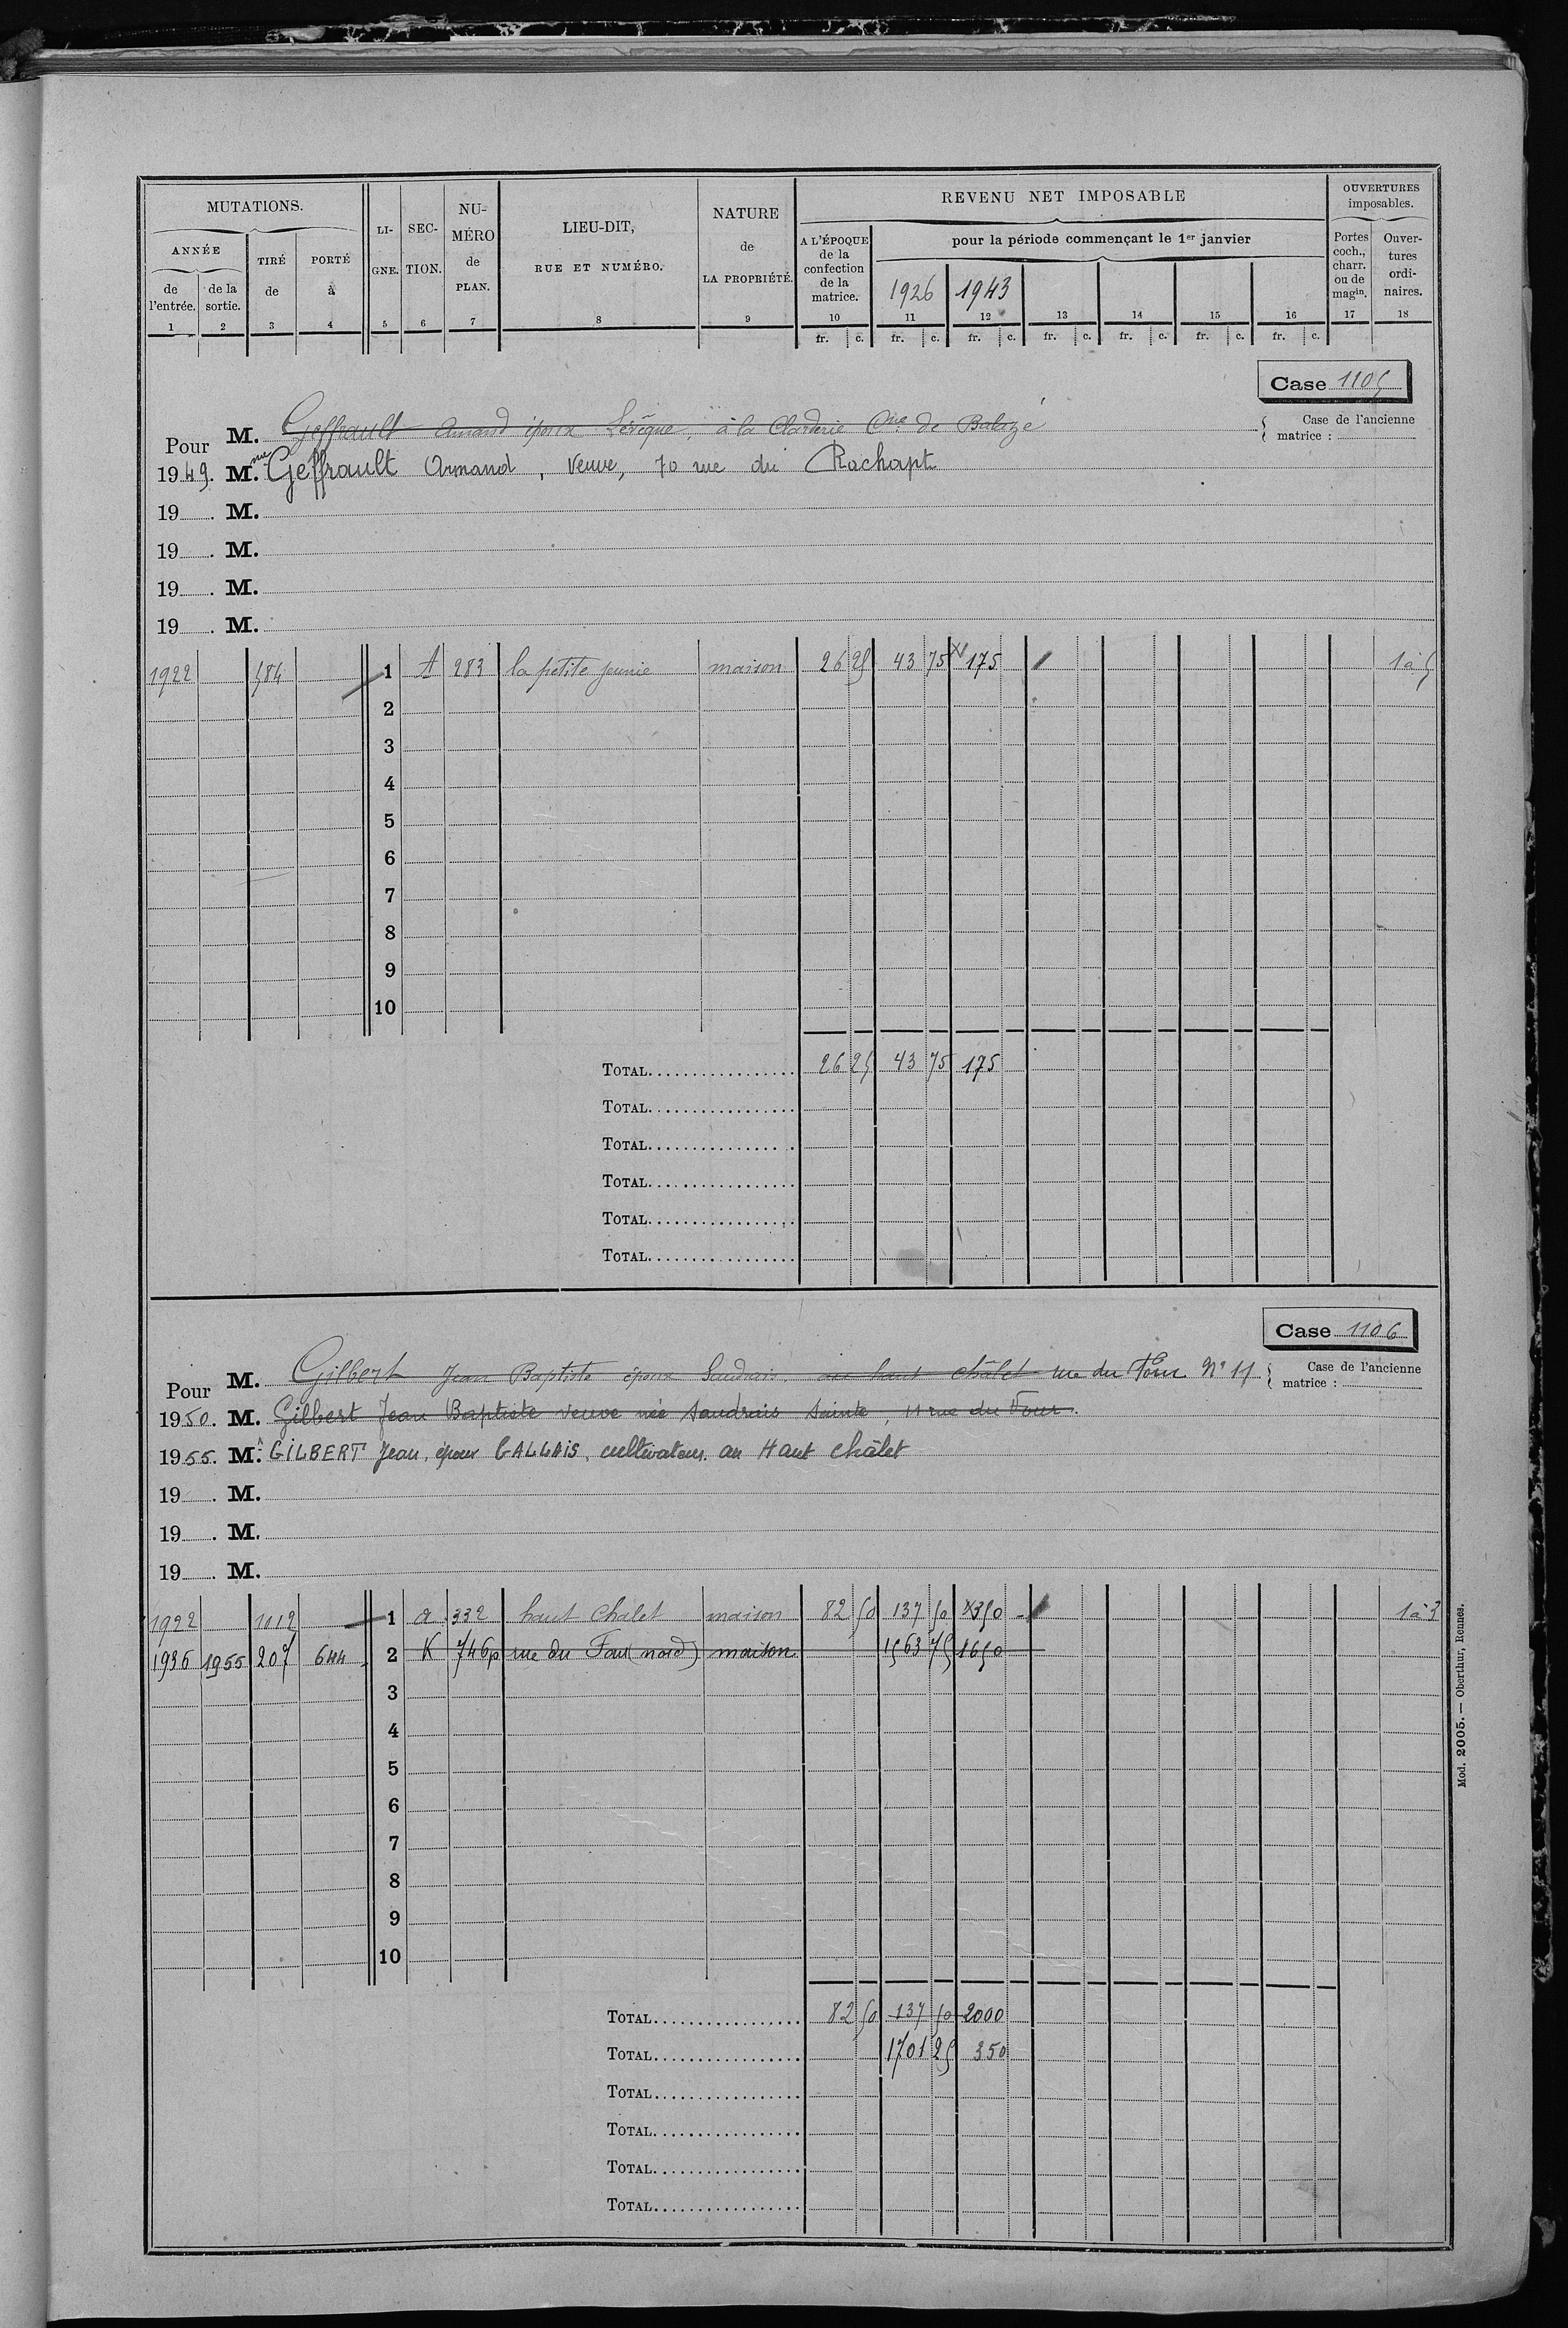 MUTATIONS.
ANNÉE
de l'entrée.
de la sortie.
TIRÉ de
PORTÉ à
LI-GNE.
SEC-TION.
NU-MÉRO de PLAN.
LIEU-DIT, RUE ET NUMÉRO.
NATURE de LA PROPRIÉTÉ.
REVENU NET IMPOSABLE
A L'ÉPOQUE de la confection de la matrice.
pour la période commençant le 1er janvier
1926 1943
OUVERTURES imposables.
Portes coch., charr. ou de magin.
Ouver-tures ordi-naires.
1 2 3 4 5 6 7 8 9 10 11 12 13 14 15 16 17 18
fr. c. fr. c. fr. c. fr. c. fr. c. fr. c. fr. c.
Case 1105
Case de l'ancienne matrice :
Pour M. Geffrault Amand époux Lévêque, à la Clarderie Cne de Balazé
1949. Mme Geffrault Armand, Veuve, 70 rue du Rachapt
19 . M.
19 . M.
19 . M.
19 . M.
1922 584 1 A 283 la petite maison 26 25 43 75 175 1 à 5
2
3
4
5
6
7
8
9
10
TOTAL 26 25 43 75 175
TOTAL
TOTAL
TOTAL
TOTAL
TOTAL
Case 1106
Case de l'ancienne matrice :
Pour M. Gilbert Jean Baptiste époux Saudrais au haut châlet rue du Four N° 11
1950. M. Gilbert Jean Baptiste veuve née Saudrais Sainte, 11 rue du Four.
1955. M. GILBERT Jean, époux GALLAIS, cultivateur au Haut Châlet
19 . M.
19 . M.
19 . M.
1922 1012 1 a 332 haut Chalet maison 82 50 137 50 350 1 à 3
1936 1955 207 644 2 K 746p rue du Four (nord) maison 1563 75 1650
3
4
5
6
7
8
9
10
TOTAL 82 50 137 50 2000
TOTAL 1701 25 350
TOTAL
TOTAL
TOTAL
TOTAL
Mod. 2005. — Oberthur, Rennes.